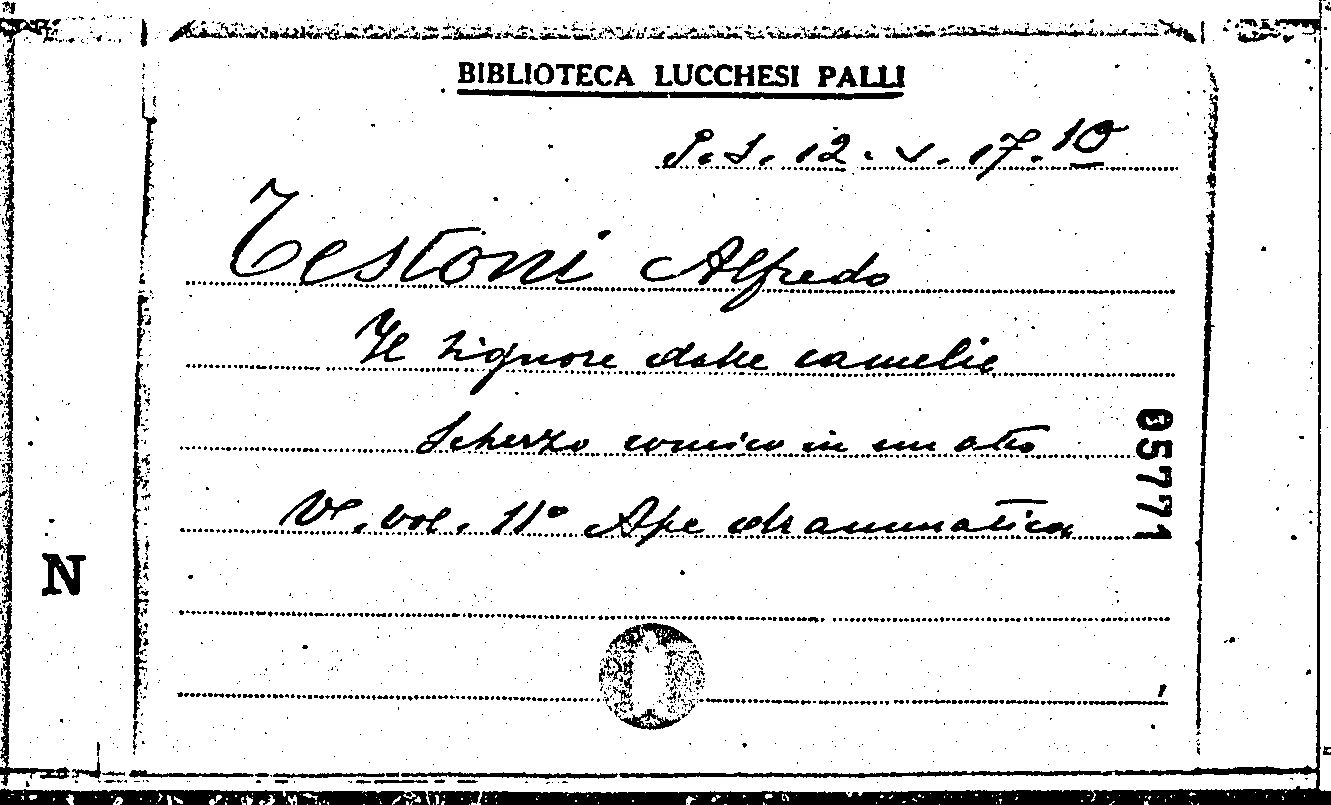 BIBLIOTECA LUCCHESI PALLI
P.S. 12. V. 17.10
Testoni Alfredo
Il Signore dalle camelie
Scherzo comico in un atto
05771
Vl. vol. 11° Ape drammatica
N